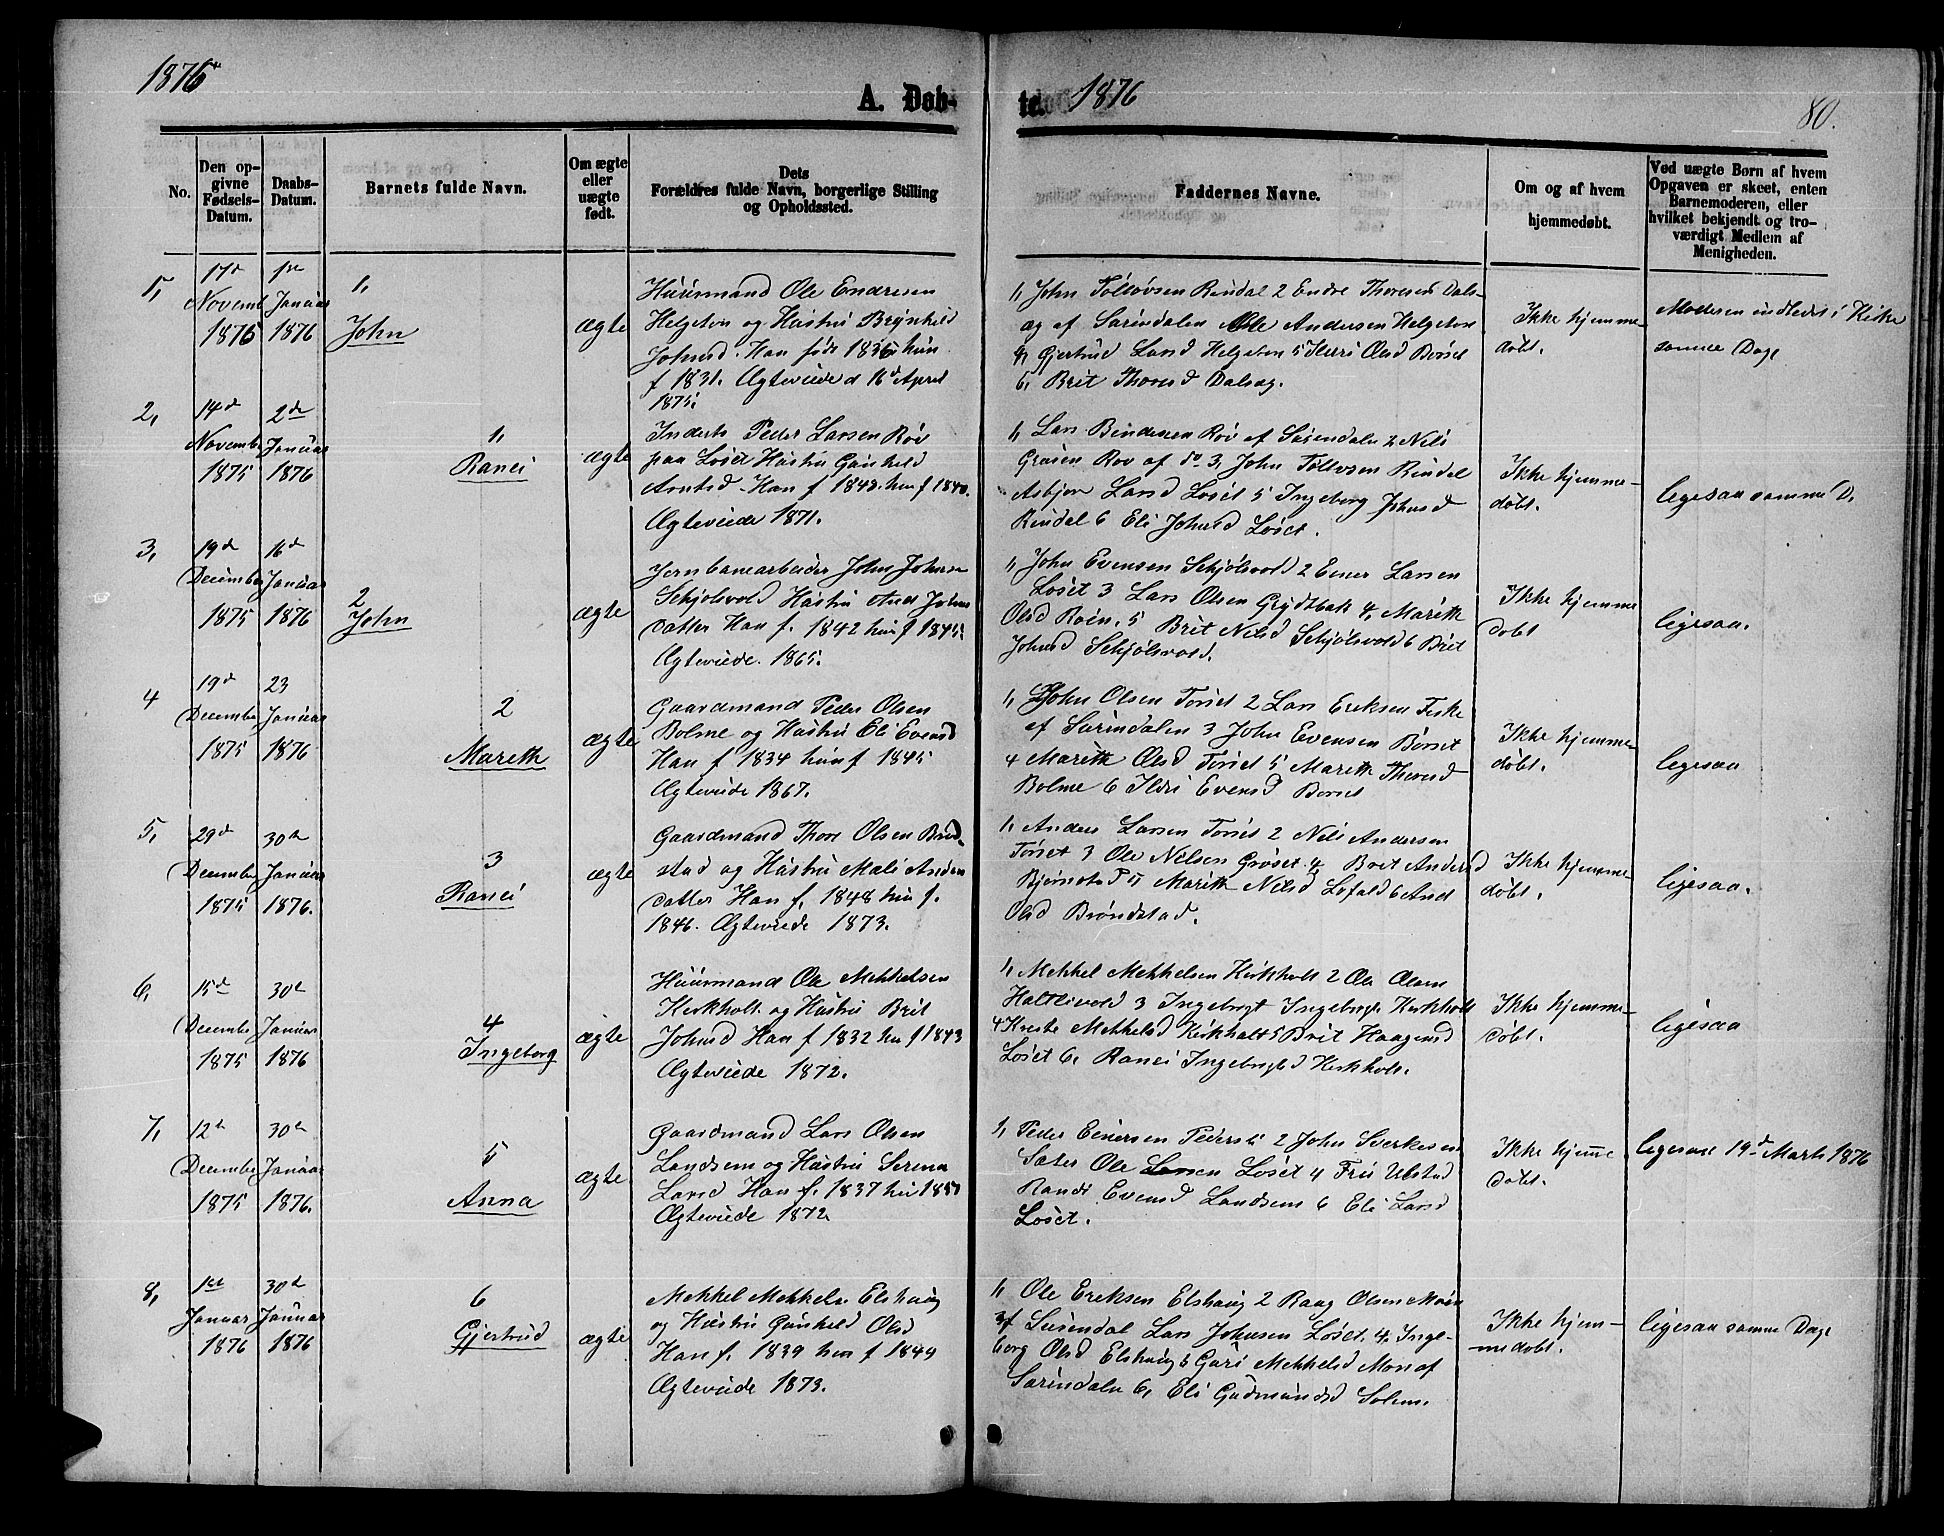 1876
A. Døb-
te.
1876
80.
No.
Den op-
givne
Fødsels-
Datum.
Daabs-
Datum.
Barnets fulde Navn.
Om ægte
eller
uægte
født.
Dets
Forældres fulde Navn, borgerlige Stilling
og Opholdssted.
Faddernes Navne.
Om og af hvem
hjemmedøbt.
Ved uægte Børn af hvem
Opgaven er skeet, enten
Barnemoderen, eller
hvilket bekjendt og tro-
værdigt Medlem af
Menigheden.
1,
17d
Novemb
1875
1ste
Januar
1876
1,
John
ægte
Huusmand Ole Endresen
Helgeton og Hustru Brynhild
Johnsd. Han født 1836 hun
f 1831. Ægteviede d 16d April
1875.
1, John Tollovsen Rindal 2 Endre Thoresen Dals-
æg af Surindalen Ole Andersen Helgeton
4, Gjertrud Larsd Helgeton 5 Ildri Olsd Børset
6, Brit Thoresd Dalsæg.
Ikke hjemme-
døbt.
Moderen indledet i Kirke
samme Dage
2,
14d
Novemb
1875
2de
Januar
1876
1,
Ranei
ægte
Inderts Peder Larsen Røv
paa Løset Hustru Gunhild
Arntsd. Han f 1843. hun f 1840.
Ægteviede 1871.
1, Lars Bendixsen Røv af Surendalen 2 Nils
Grasen Rov af do 3, John Tollovsen Rindal
Asbjørn Larsd Løset 5 Ingeborg Johnsd
Rindal 6 Eli Johnsd Løset.
Ikke hjemme-
døbt.
ligesaa samme D.
3,
19d
December
1875
16d
Januar
1876
2
John
ægte
Jernbanearbeider John Johnsen
Schjølsvold Hustru And Johns
datter Han f. 1842 hun f 1845
Ægteviede. 1865.
1, John Evensen Schjølsvold 2 Einer Larsen
Løset 3 Lars Olsen Grydtbak 4, Marith
Olsd Røen. 5 Brit Nilsd Schjølsvold 6 Brit
Johnsd Schjølsvold.
Ikke hjemme
døbt
ligesaa.
4
19d
December
1875
23
Januar
1876
2
Marith
ægte
Gaardmand Peder Olsen
Bolme og Hustru Eli Evensd
Han f 1834 hun f 1845
Ægteviede 1867.
1, John Olsen Torset 2 Lars Eriksen Fiske
af Surindalen 3 John Evensen Børset
4 Marith Olsd Torset 5 Marith Thoresd
Bolme 6 Ildri Evensd Børset
Ikke hjemme-
døbt.
ligesaa
5,
29d
December
1875
30te
Januar
1876.
3
Ranei
ægte
Gaardmand Thore Olsen Brød-
stad og Hustru Mali Anders
datter Han f. 1848 hun f.
1846. Ægteviede 1873.
1, Anders Larsen Torset 2 Nils Andersen
Torset 3 Ole Nilsen Grøset 4 Brit Andersd
Bjørnstad 5 Marith Nilsd Lefald 6 And
Olsd Brøndstad.
Ikke hjemme-
døbt.
ligesaa.
6,
15d
December
1875
30te
Januar
1876
4
Ingeborg
ægte
Huusmand Ole Mekkelsen
Kirkholt og Hustru Brit
Johnsd Han f 1832 hun f 1843
Ægteviede 1872.
1, Mekkel Mekkelsen Kirkholt 2 Ole Olsen
Haltlivold 3 Ingebrigt Ingebrigts Kirkholt
4 Kriste Mekkelsd Kirkholt 5 Brit Haagensd
Løset 6, Ranei Ingebrigtsd Kirkholt.
Ikke hjemme-
døbt.
ligesaa
7,
12te
December
1875
30te
Januar
1876.
5
Anna
ægte
Gaardmand Lars Olsen
Landsem og Hustru Serena
Larsd Han f. 1837 hun 1850
Ægteviede 1872
1, Peder Einersen Pederst 2 John Sverkesen
Sæter Ole Larsen Løset 4 Fru Ulstad
Randi Evensd Landsem 6 Eli Larsd
Løset.
Ikke hjemme
døbt.
ligesaa 19d Marts 1876
8,
1ste
Januar
1876
30te
Januar
1876
6
Gjertrud
ægte
Mekkel Mekkels. Elshaug
og Hustru Gunhild Olsd
Han f. 1839 hun f 1849
Ægteviede 1873.
1, Ole Eriksen Elshaug 2 Raag Olsen Moen
af Surendal 3 Lars Johnsen Løset 4, Inge-
borg Olsd Elshaug 5 Guri Mekkelsd Moen af
Surindalen 6, Eli Gudmundsd Solem.
Ikke hjem-
medøbt.
ligesaa samme Dage